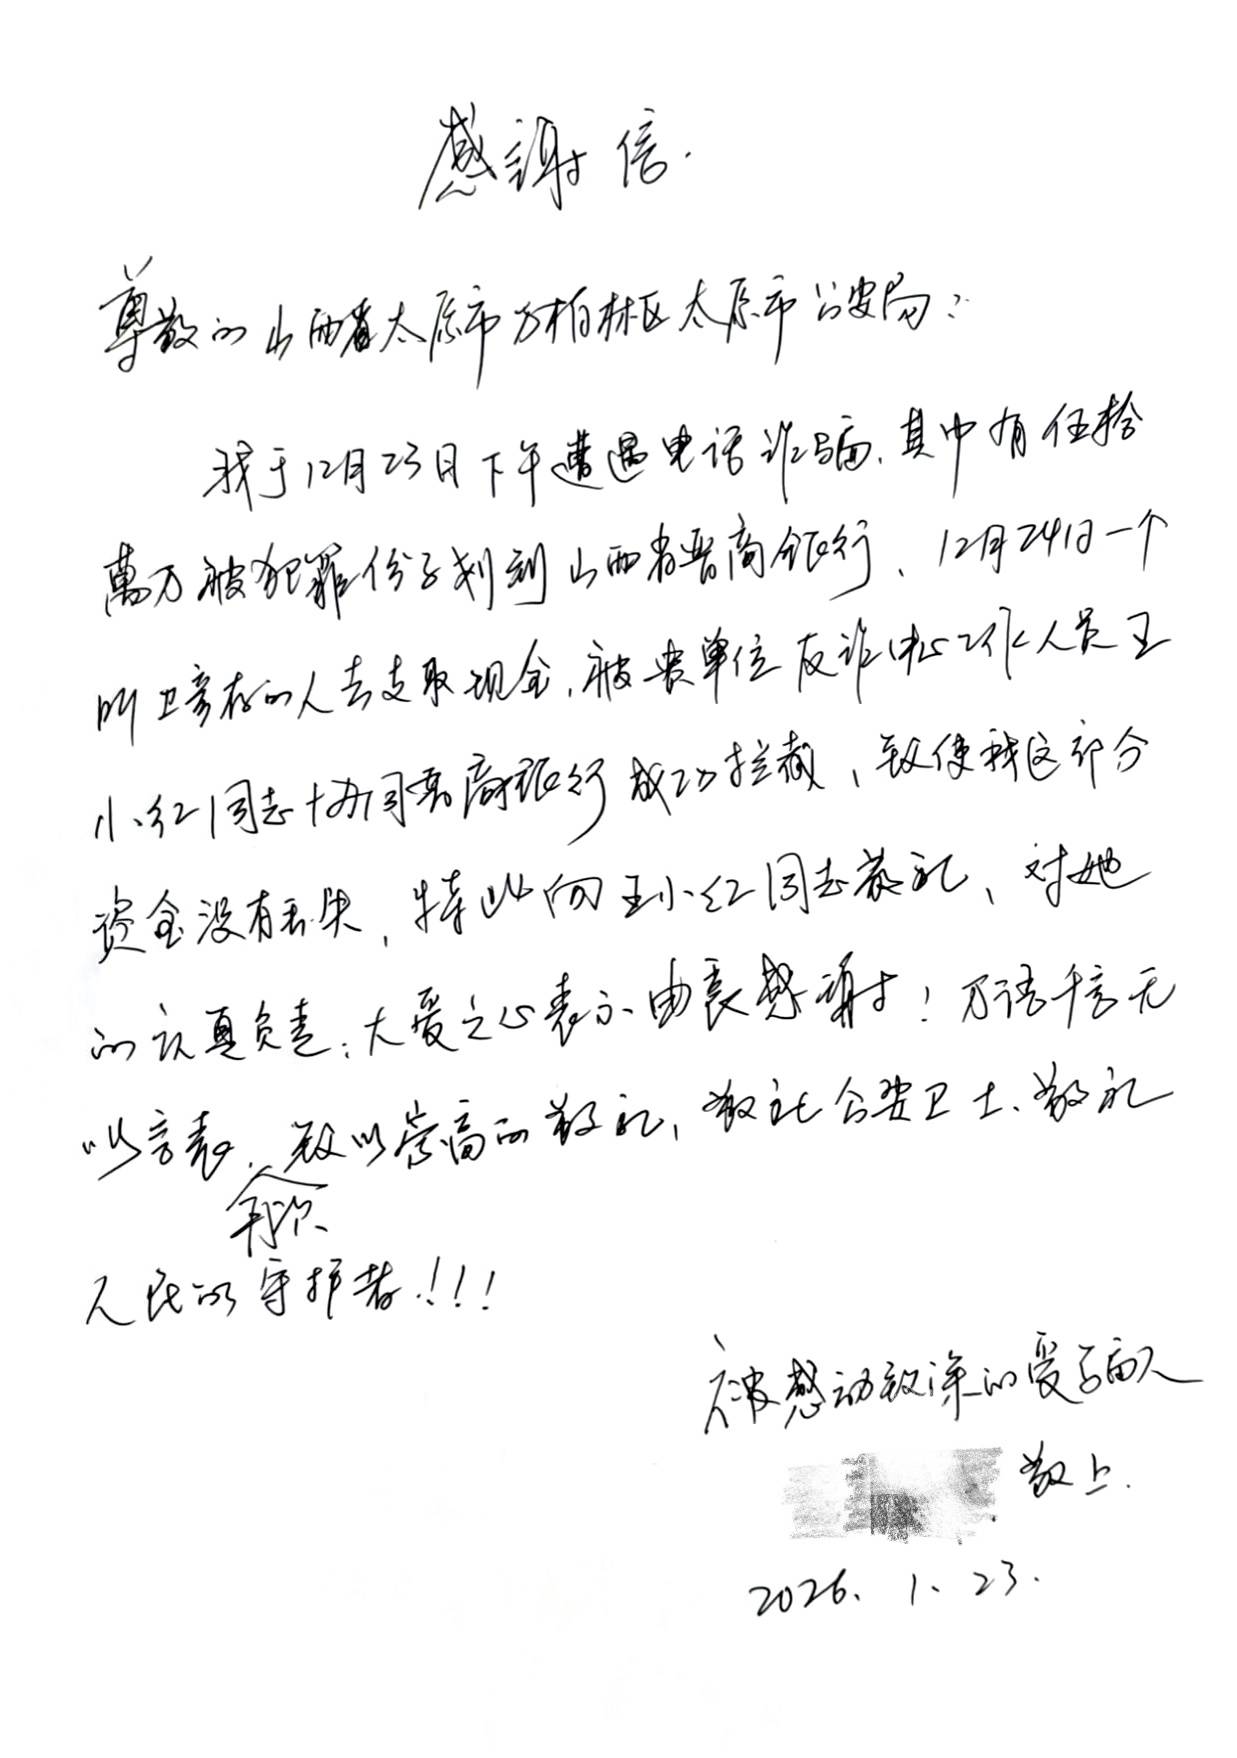 感谢信.
尊敬的山西省太原市万柏林区太原市公安局:
我于12月23日下午遭遇电话诈骗.其中有伍拾
萬万被犯罪份子划到山西省晋商银行、12月24日一个
叫卫彦存的人去支取现金,被贵单位反诈中心工作人员王
小红同志协同晋商银行成功拦截,致使我这部分
资金没有丢失,特此向王小红同志敬礼、对她
的认真负责;大爱之心表示由衷感谢!万语千言无
以言表.致以崇高的敬礼,敬礼公安卫士、敬礼
再次
人民的守护者.!!!
被感动致深的受骗人
敬上.
2026.1.23.